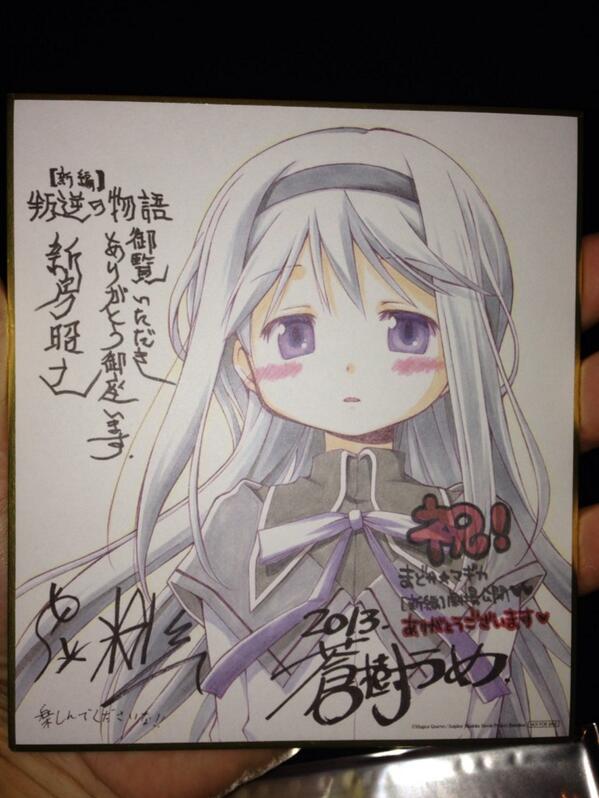 【新編】
叛逆の物語
御覧いただき
ありがとう御座います。
新房昭之
祝!
まどか★マギカ
[新編]劇場公開♥♥
ありがとうございます♥
2013.
蒼樹うめ.
楽しんでくださいな!!
©Magica Quartet/Aniplex, Madoka Movie Project Rebellion NOT FOR SALE